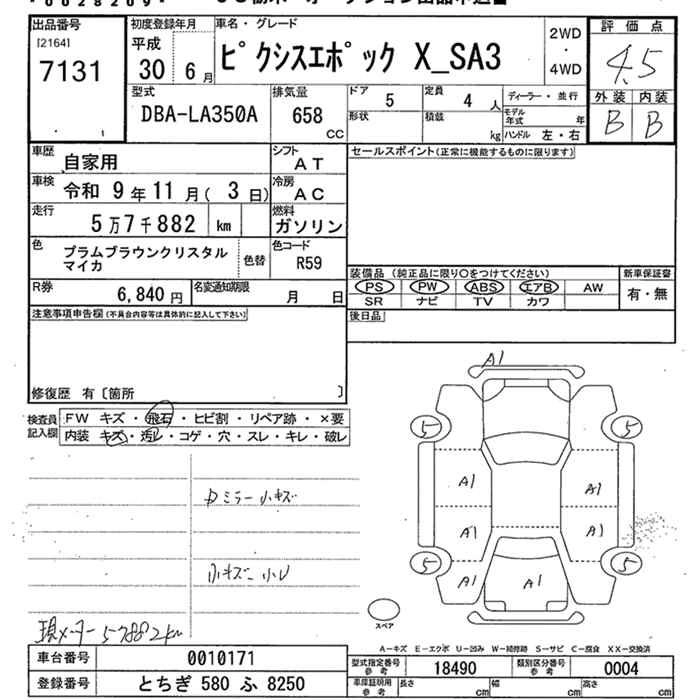 出品番号
[2164]
7131
初度登録年月
平成
30 6月
車名・グレード
ピクシスエポック X_SA3
2WD
・
4WD
評価点
4.5
外装 内装
B B
型式
DBA-LA350A
排気量
658
CC
ドア 5
定員 4 人
ディーラー・並行
形状
積載 kg
モデル年式 年
ハンドル 左・右
車歴 自家用
シフト AT
セールスポイント(正常に機能するものに限ります)
車検 令和 9年11月( 3日)
冷房 AC
走行 5万7千882 km
燃料 ガソリン
色 プラムブラウンクリスタル
マイカ
色替
色コード R59
R券 6,840円
名変通知期限 月 日
装備品 (純正品に限り○をつけてください)
PS PW ABS エアB AW
SR ナビ TV カワ
新車保証書
有・無
注意事項申告欄(不具合内容等は具体的に記入して下さい)
後日品
修復歴 有〔箇所 〕
検査員
記入欄
FW キズ・飛石・ヒビ割・リペア跡・×要
内装 キズ・汚レ・コゲ・穴・スレ・キレ・破レ
A1
5 5
A1 A1
A1 A1
5 5
A1 A1
スペア
ミラー小キズ
小キズ 小U
現メーター 57882km
A-キズ E-エクボ U-凹み W-補修跡 S-サビ C-腐食 XX-交換済
車台番号 0010171
登録番号 とちぎ 580 ふ 8250
型式指定番号
参考
18490
類別区分番号
参考
0004
車庫証明用
参考
長さ cm 幅 cm 高さ cm